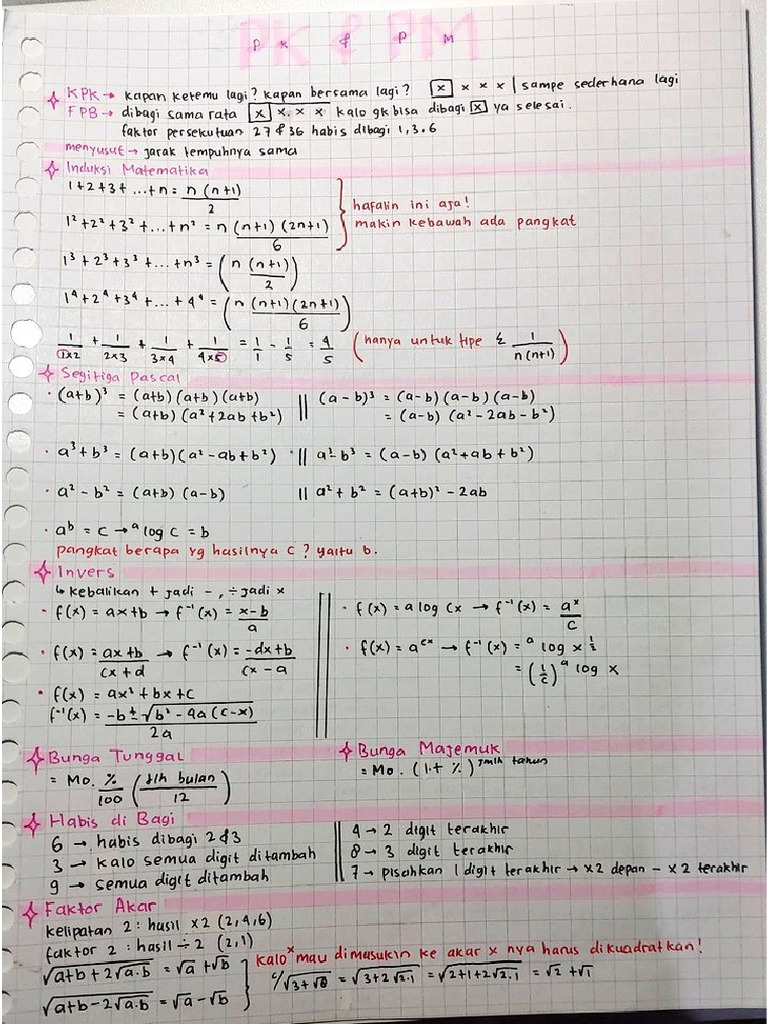 PK & PM
KPK → kapan ketemu lagi? kapan bersama lagi? x x x x | sampe sederhana lagi
FPB → dibagi sama rata x x. x x kalo gk bisa dibagi x ya selesai.
faktor persekutuan 27 & 36 habis dibagi 1, 3. 6
menyusut → jarak tempuhnya sama
Induksi Matematika
1+2+3+...+n = n(n+1)/2
1²+2²+3²+...+n² = n(n+1)(2n+1)/6
hafalin ini aja!
makin kebawah ada pangkat
1³+2³+3³+...+n³ = (n(n+1)/2)
1⁴+2⁴+3⁴+...+4⁴ = (n(n+1)(2n+1)/6)
1/1x2 + 1/2x3 + 1/3x4 + 1/4x5 = 1/1 - 1/5 = 4/5 (hanya untuk tipe Σ 1/n(n+1))
Segitiga Pascal
· (a+b)³ = (a+b)(a+b)(a+b) || (a-b)³ = (a-b)(a-b)(a-b)
= (a+b)(a²+2ab+b²) || = (a-b)(a²-2ab-b²)
· a³+b³ = (a+b)(a²-ab+b²) · || a³-b³ = (a-b)(a²+ab+b²)
· a²-b² = (a+b)(a-b) || a²+b² = (a+b)²-2ab
· aᵇ = c → ᵃlog c = b
pangkat berapa yg hasilnya c? yaitu b.
Invers
↳ kebalikan + jadi -, ÷ jadi x
· f(x) = ax+b → f⁻¹(x) = x-b/a
· f(x) = a log cx → f⁻¹(x) = aˣ/c
· f(x) = ax+b/cx+d → f⁻¹(x) = -dx+b/cx-a
· f(x) = aᶜˣ → f⁻¹(x) = ᵃlog x
= (1/c) ᵃlog x
· f(x) = ax²+bx+c
f⁻¹(x) = -b±√b²-4a(c-x)/2a
Bunga Tunggal
= Mo. %/100 (jlh bulan/12)
Bunga Majemuk
= Mo. (1+%)ʲᵐˡʰ ᵗᵃʰᵘⁿ
Habis di Bagi
6 → habis dibagi 2 & 3
3 → kalo semua digit ditambah
9 → semua digit ditambah
4 → 2 digit terakhir
8 → 3 digit terakhir
7 → pisahkan 1 digit terakhir → x2 depan - x2 terakhir
Faktor Akar
kelipatan 2 : hasil x2 (2,4,6)
faktor 2 : hasil ÷2 (2,1)
√a+b+2√a.b = √a+√b
√a+b-2√a.b = √a-√b
kalo x mau dimasukin ke akar x nya harus dikuadratkan!
c/ √3+√8 = √3+2√2.1 = √2+1+2√2.1 = √2+√1